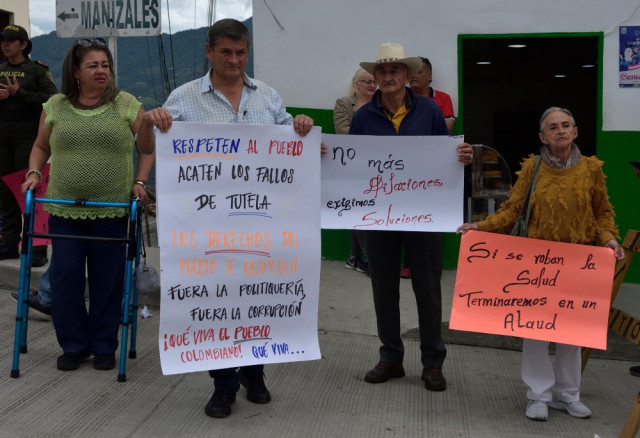 MANIZALES
POLICIA
RESPETEN AL PUEBLO
ACATEN LOS FALLOS
DE TUTELA
LOS DERECHOS DEL
PUEBLO SE RESPETAN
FUERA LA POLITIQUERÍA,
FUERA LA CORRUPCIÓN
¡QUÉ VIVA EL PUEBLO
COLOMBIANO! QUÉ VIVA...
no más
Dilaciones,
exigimos
Soluciones.
Si se roban la
Salud
Terminaremos en un
Alaud